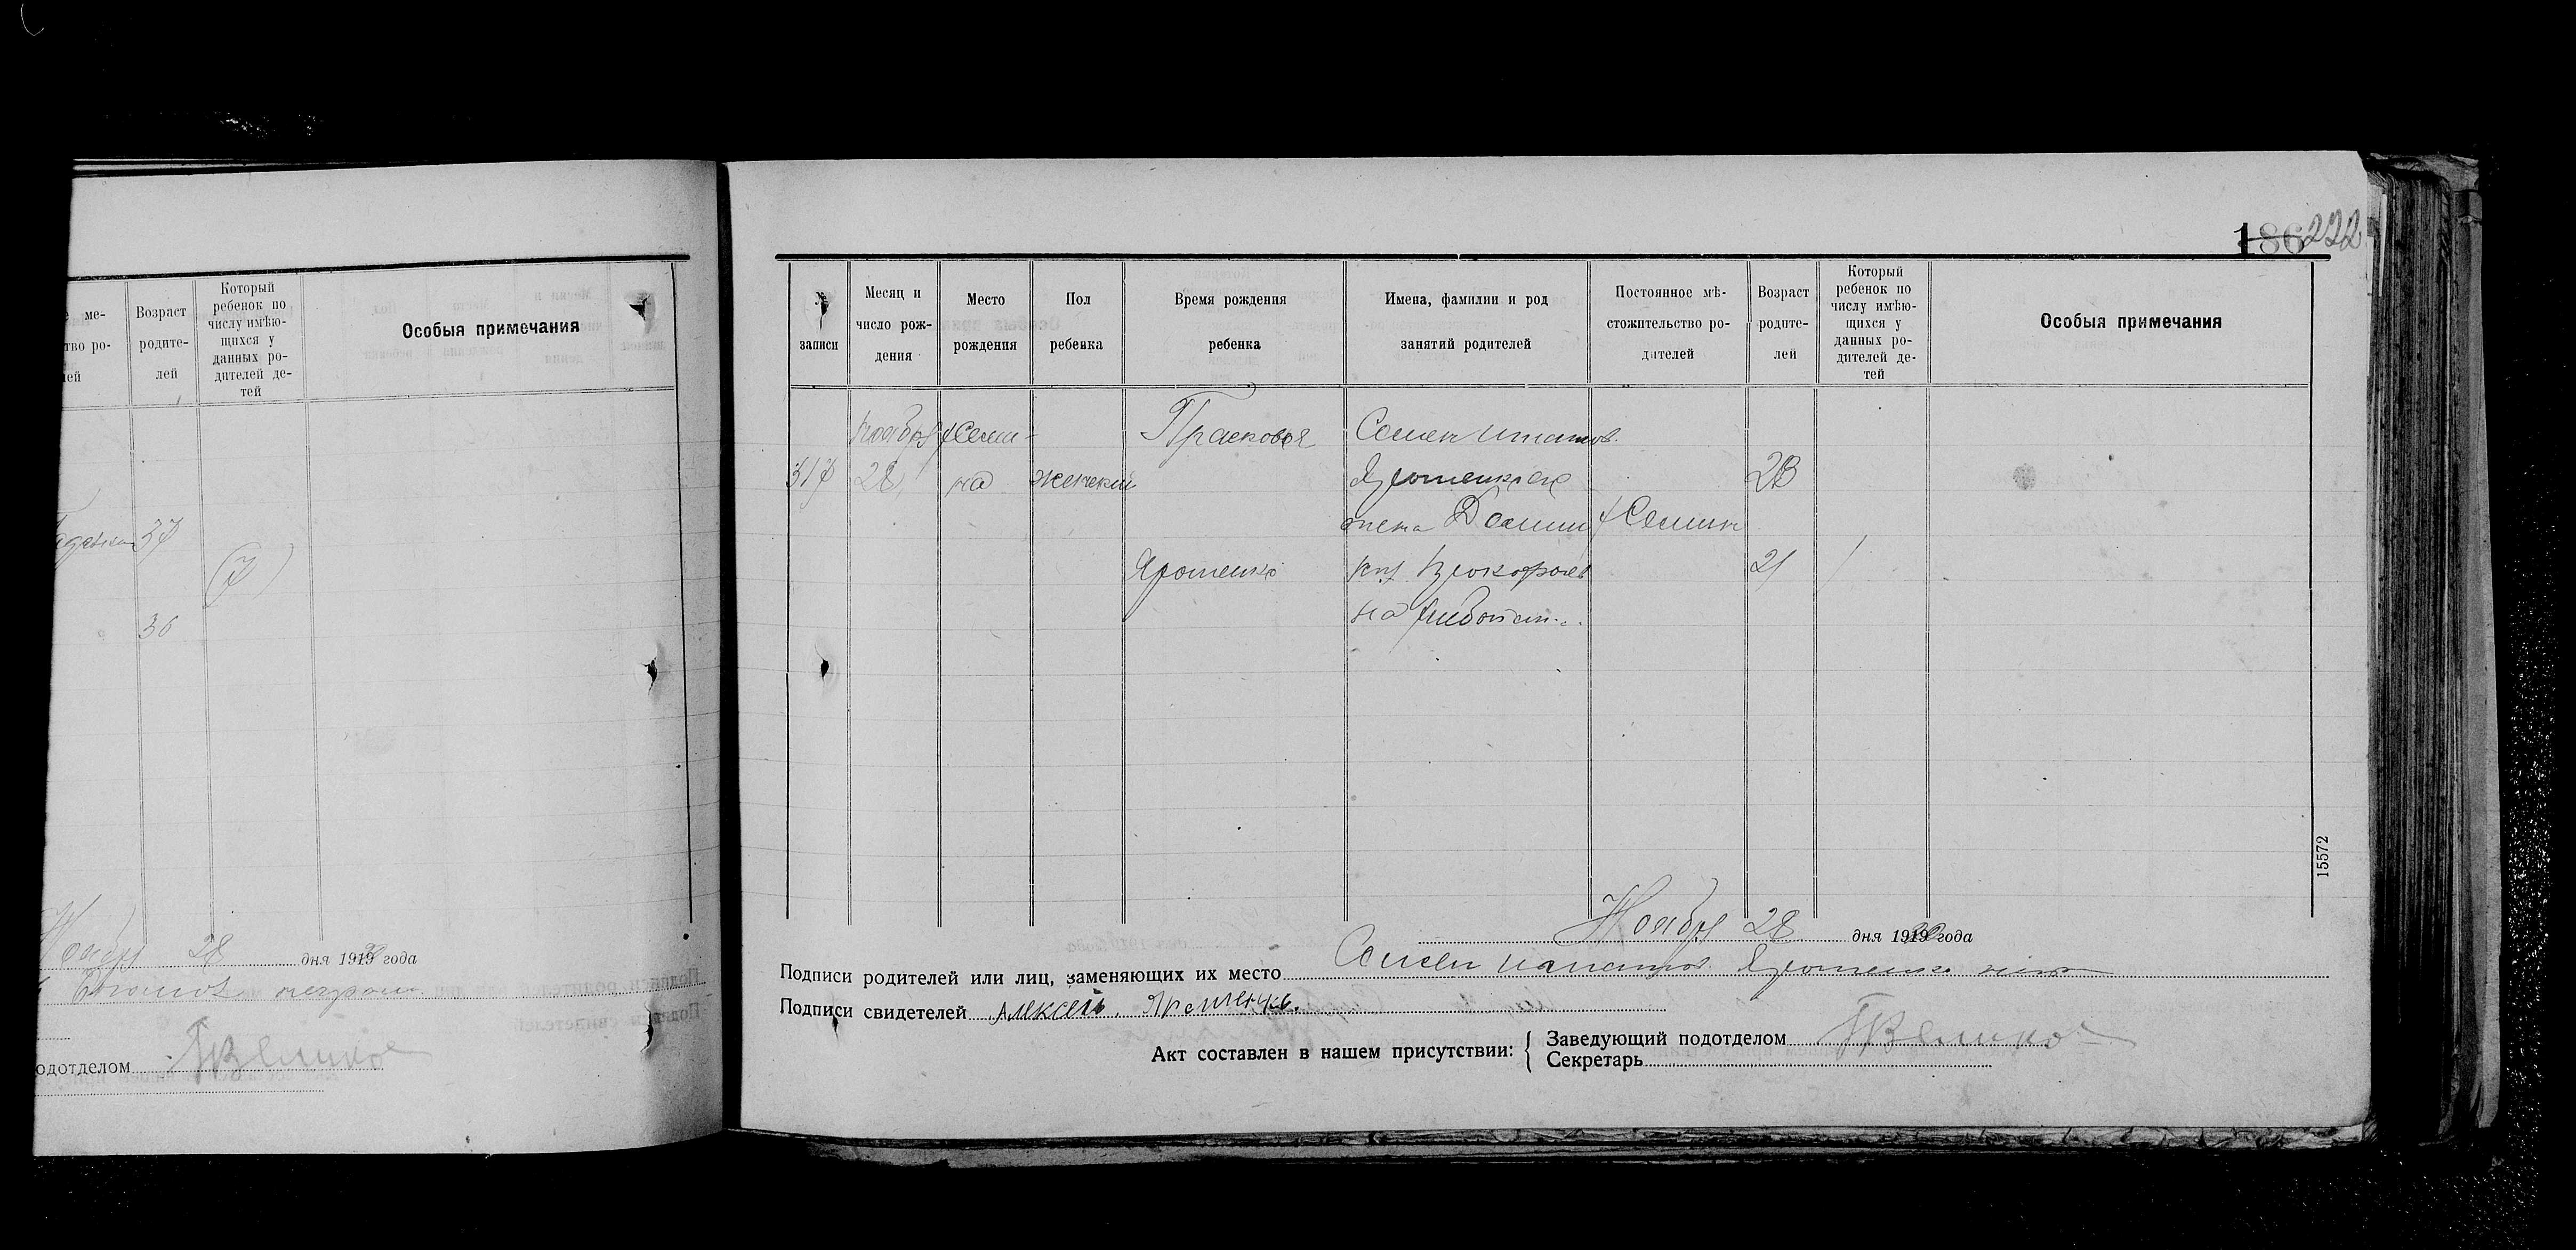 186 222
ме-
тво ро-
лей
Возраст
родите-
лей
Который
ребенок по
числу имѣю-
щихся у
данных ро-
дителей де-
тей
Особыя примечания
37
(7)
36
Ноябр 28 дня 1919 года
неграм.
одотделом Величко
№
записи
Месяц и
число рож-
дения
Место
рождения
Пол
ребенка
Время рождения
ребенка
Имена, фамилии и род
занятий родителей
Постоянное мѣ-
стожительство ро-
дителей
Возраст
родите-
лей
Который
ребенок по
числу имѣю-
щихся у
данных ро-
дителей де-
тей
Особыя примечания
Ноябр
Прасковья
Семен
317
28
на
женский
Ярошенко
23
жена
Ярошенко
Прокофьев
21
на
15572
Ноябр 28 дня 1919 года
Подписи родителей или лиц, заменяющих их место Семен Ярошенко
Подписи свидетелей Алексей Ярошенко
Акт составлен в нашем присутствии:
Заведующий подотделом Величко
Секретарь